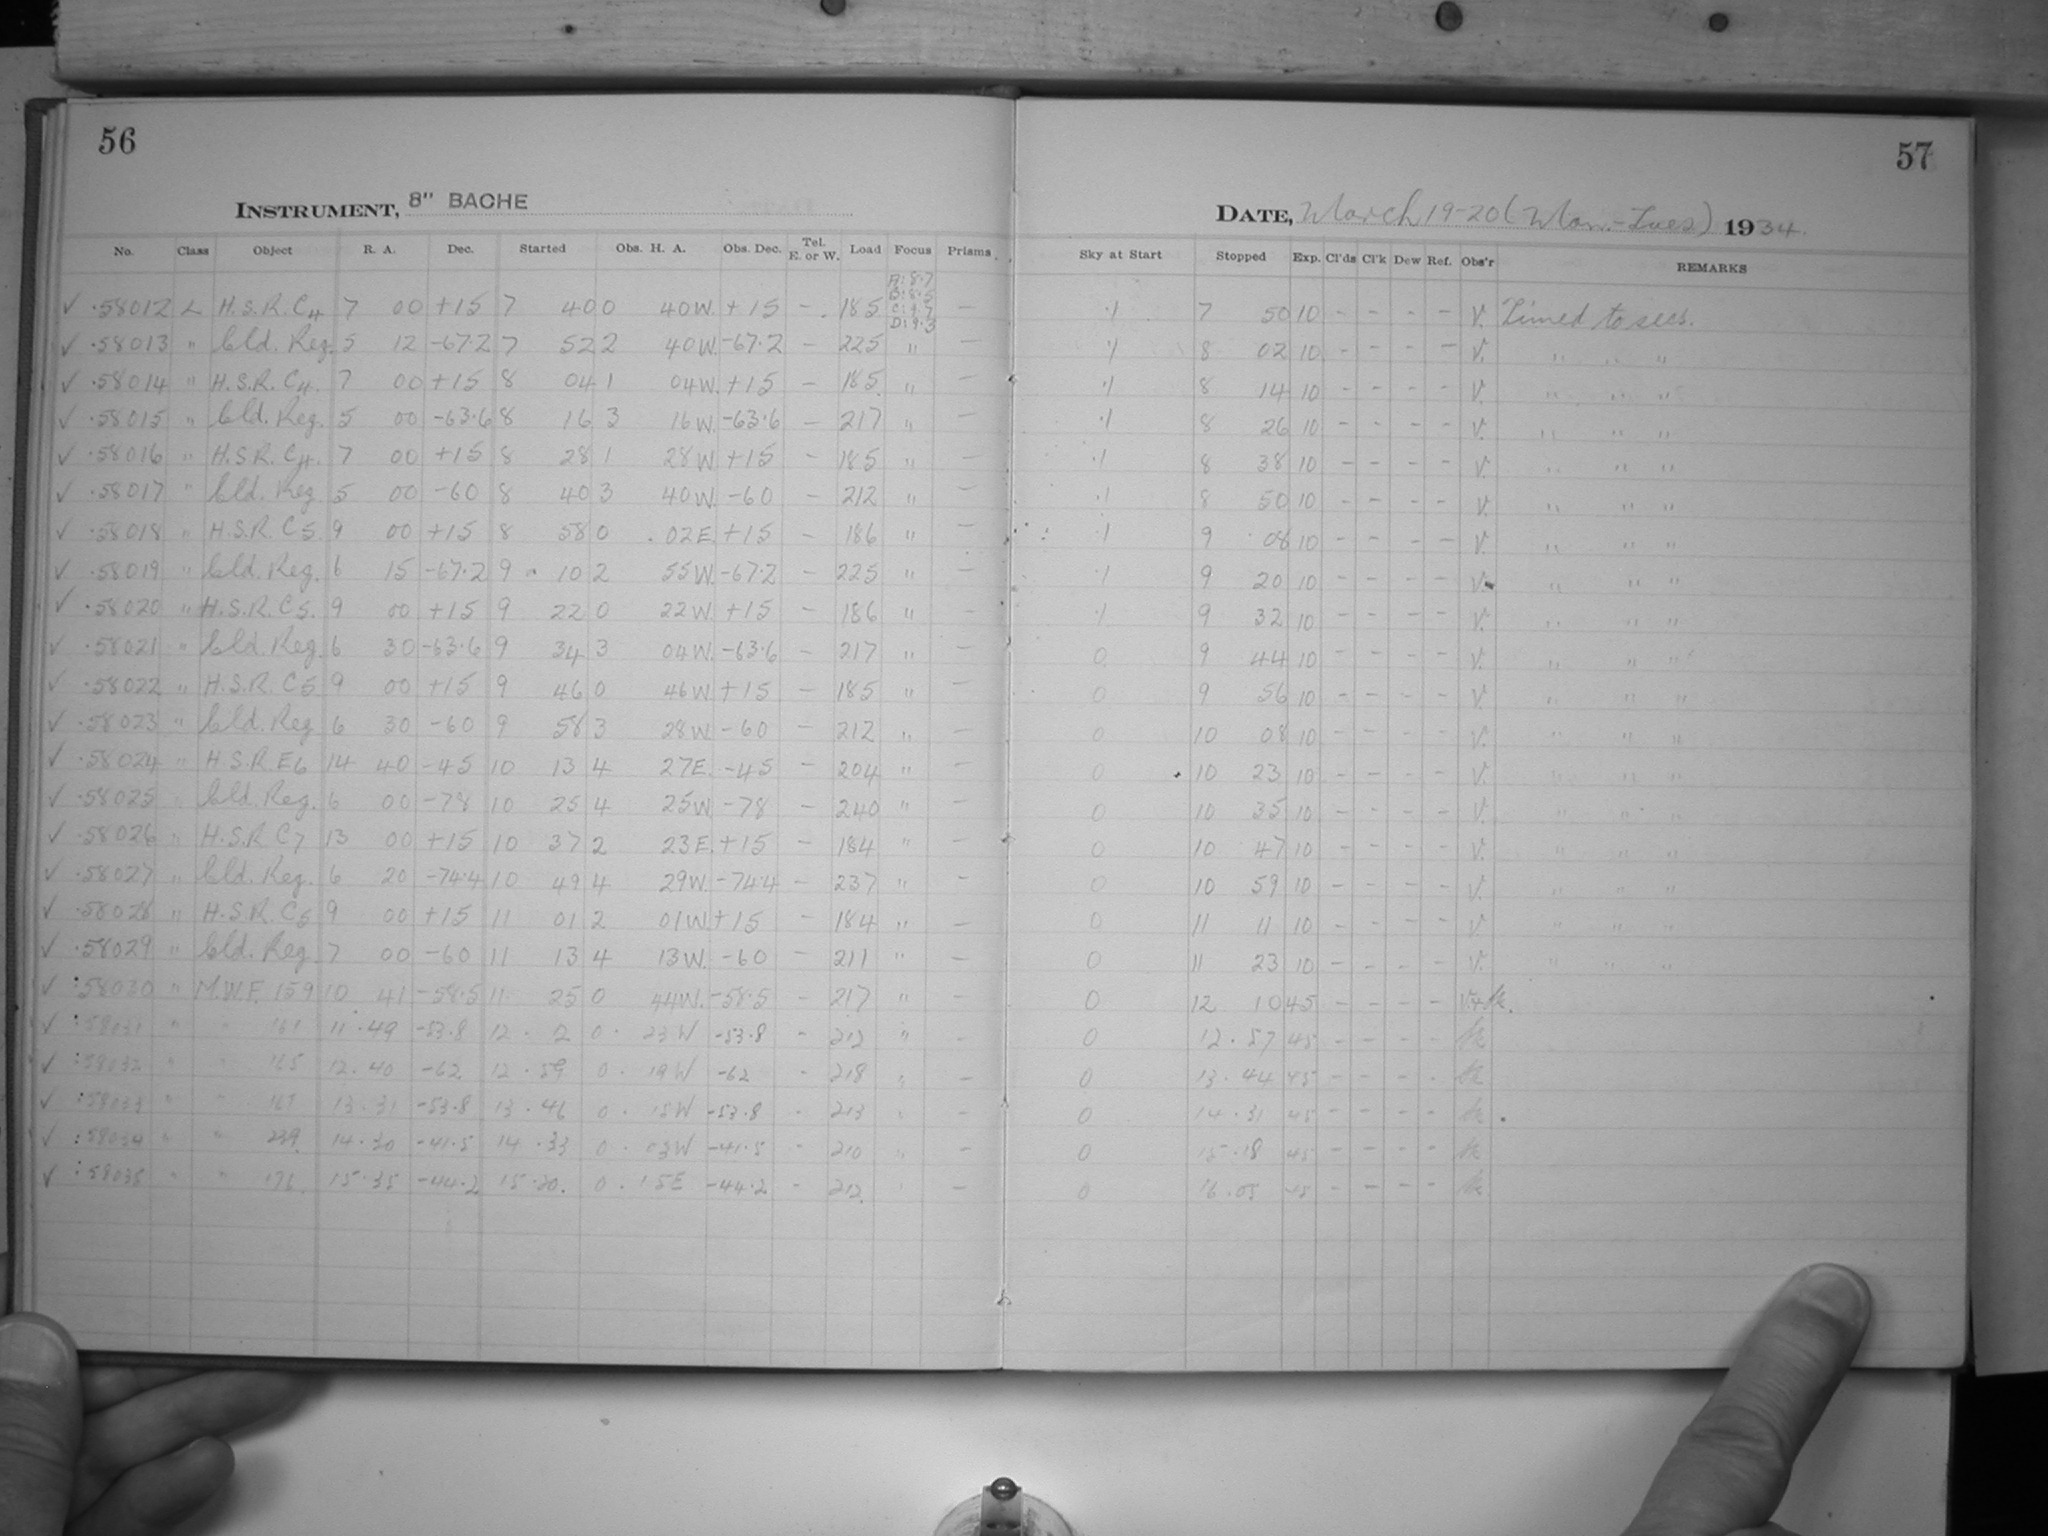 56
57
INSTRUMENT, 8" BACHE
DATE, March 19-20 (Mon.-Tues) 1934.
No. Class Object R. A. Dec. Started Obs. H. A. Obs. Dec. Tel. E. or W. Load Focus Prisms Sky at Start Stopped Exp. Cl'ds Cl'k Dew Ref. Obs'r REMARKS
A: 8.7
B: 8.5
C: 9.7
D: 9.3
✓ .58012 L H.S.R. C4 7 00 +15 7 40 0 40W. +15 - 185 - .1 7 50 10 - - - - V. Timed to secs.
✓ .58013 " Cld. Reg. 5 12 -67.2 7 52 2 40W. -67.2 - 225 " - .1 8 02 10 - - - - V. " " "
✓ .58014 " H.S.R. C4. 7 00 +15 8 04 1 04W. +15 - 185 " - .1 8 14 10 - - - - V. " " "
✓ .58015 " Cld. Reg. 5 00 -63.6 8 16 3 16W. -63.6 - 217 " - .1 8 26 10 - - - - V. " " "
✓ .58016 " H.S.R. C4. 7 00 +15 8 28 1 28W +15 - 185 " - .1 8 38 10 - - - - V. " " "
✓ .58017 " Cld. Reg 5 00 -60 8 40 3 40W. -60 - 212 " - .1 8 50 10 - - - - V. " " "
✓ .58018 " H.S.R. C5. 9 00 +15 8 58 0 02E. +15 - 186 " - .1 9 08 10 - - - - V. " " "
✓ .58019 " Cld. Reg. 6 15 -67.2 9 10 2 55W. -67.2 - 225 " - .1 9 20 10 - - - - V. " " "
✓ .58020 " H.S.R. C5. 9 00 +15 9 22 0 22W. +15 - 186 " - .1 9 32 10 - - - - V. " " "
✓ .58021 " Cld. Reg. 6 30 -63.6 9 34 3 04W. -63.6 - 217 " - 0 9 44 10 - - - - V. " " "
✓ .58022 " H.S.R. C5. 9 00 +15 9 46 0 46W +15 - 185 " - 0 9 56 10 - - - - V. " " "
✓ .58023 " Cld. Reg 6 30 -60 9 58 3 28W. -60 - 212 " - 0 10 08 10 - - - - V. " " "
✓ .58024 " H.S.R. E6 14 40 -45 10 13 4 27E. -45 - 204 " - 0 10 23 10 - - - - V. " " "
✓ .58025 " Cld. Reg. 6 00 -78 10 25 4 25W -78 - 240 " - 0 10 35 10 - - - - V. " " "
✓ .58026 " H.S.R C7 13 00 +15 10 37 2 23E. +15 - 184 " - 0 10 47 10 - - - - V. " " "
✓ .58027 " Cld. Reg. 6 20 -74.4 10 49 4 29W. -74.4 - 237 " - 0 10 59 10 - - - - V. " " "
✓ .58028 " H.S.R. C5 9 00 +15 11 01 2 01W. +15 - 184 " - 0 11 11 10 - - - - V " " "
✓ .58029 " Cld. Reg. 7 00 -60 11 13 4 13W. -60 - 211 " - 0 11 23 10 - - - - V. " " "
✓ :58030 " M.W.F. 159 10 41 -58.5 11 25 0 44W. -58.5 - 217 " - 0 12 10 45 - - - -
✓ :58031 " " 161 11.49 -53.8 12. 2 0. 23W -53.8 - 212 " - 0 12.57 45 - - - -
✓ :58032 " " 165 12.40 -62 12.59 0. 19W -62 - 218 " - 0 13.44 45 - - - -
✓ :58033 " " 167 13.31 -53.8 13.46 0. 15W -53.8 - 213 " - 0 14.31 45 - - - -
✓ :58034 " " 239 14.30 -41.5 14.33 0. 03W -41.5 - 210 " - 0 15.18 45 - - - -
✓ :58035 " " 15.35 -44.2 15.20. 0. 15E -44.2 - 212 - 0 16.05 45 - - - -